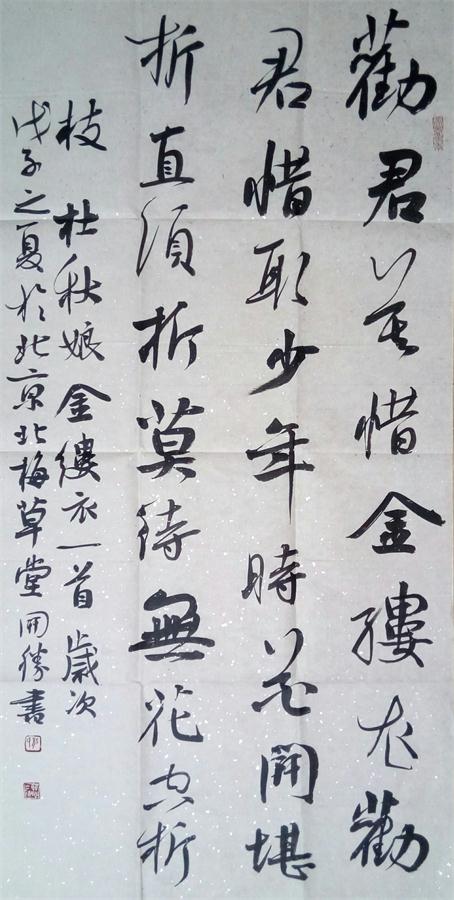 勸君莫惜金縷衣勸
君惜取少年時花開堪
折直須折莫待無花空折
枝 杜秋娘金縷衣一首 歲次
戊子之夏於北京北梅草堂開勝書